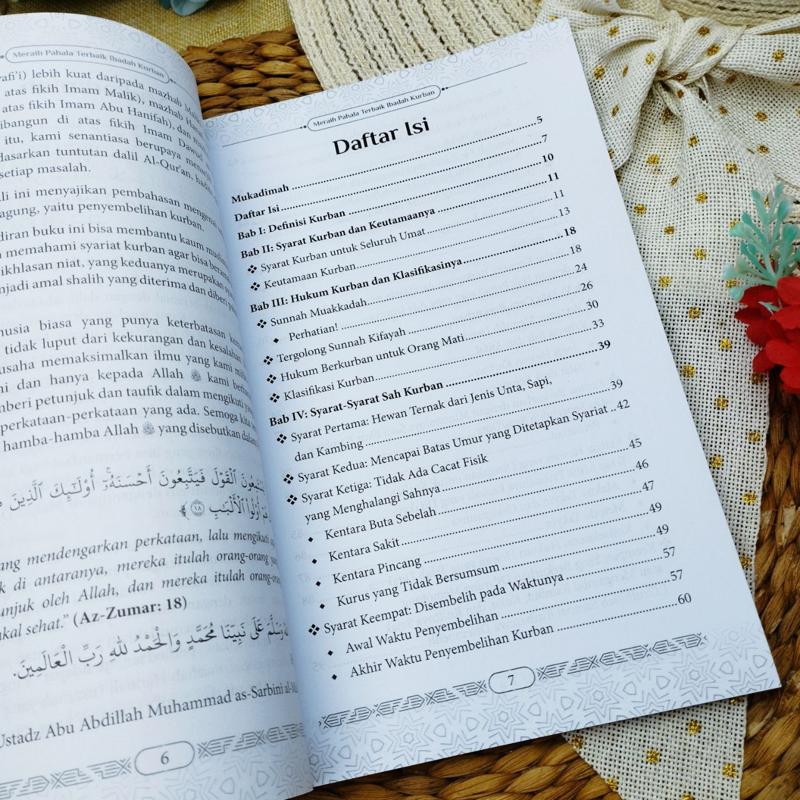 Meraih Pahala Terbaik Ibadah Kurban
lebih kuat daripada mazhab
atas fikih Imam Malik), mazhab
atas fikih Imam Abu Hanifah), dan
di atas fikih Imam
itu, kami senantiasa berupaya
tuntutan dalil Al-Qur'an,
setiap masalah.
ini menyajikan pembahasan
agung, yaitu penyembelihan kurban.
buku ini bisa membantu kaum
memahami syariat kurban agar bisa
niat, yang keduanya merupakan
amal shalih yang diterima dan diberi
biasa yang punya keterbatasan
tidak luput dari kekurangan dan kesalahan
memaksimalkan ilmu yang kami
dan hanya kepada Allah ﷻ kami
petunjuk dan taufik dalam mengikuti
perkataan-perkataan yang ada. Semoga kita
hamba-hamba Allah ﷻ yang disebutkan dalam
ٱلْقَوْلَ فَيَتَّبِعُونَ أَحْسَنَهُۥٓ أُوْلَٰٓئِكَ ٱلَّذِينَ
أُوْلُواْ ٱلْأَلْبَٰبِ ١٨
mendengarkan perkataan, lalu mengikuti
di antaranya, mereka itulah orang-orang
oleh Allah, dan mereka itulah orang-orang
sehat." (Az-Zumar: 18)
وَسَلَّمَ عَلَى نَبِيِّنَا مُحَمَّدٍ وَالْحَمْدُ لِلهِ رَبِّ الْعَالَمِينَ.
Ustadz Abu Abdillah Muhammad as-Sarbini
6
Meraih Pahala Terbaik Ibadah Kurban
Daftar Isi
Mukadimah ..... 5
Daftar Isi ..... 7
Bab I: Definisi Kurban ..... 10
Bab II: Syarat Kurban dan Keutamaanya ..... 11
❖ Syarat Kurban untuk Seluruh Umat ..... 11
❖ Keutamaan Kurban ..... 13
Bab III: Hukum Kurban dan Klasifikasinya ..... 18
❖ Sunnah Muakkadah ..... 18
◆ Perhatian! ..... 24
❖ Tergolong Sunnah Kifayah ..... 26
❖ Hukum Berkurban untuk Orang Mati ..... 30
❖ Klasifikasi Kurban ..... 33
Bab IV: Syarat-Syarat Sah Kurban ..... 39
❖ Syarat Pertama: Hewan Ternak dari Jenis Unta, Sapi,
dan Kambing ..... 39
❖ Syarat Kedua: Mencapai Batas Umur yang Ditetapkan Syariat .. 42
❖ Syarat Ketiga: Tidak Ada Cacat Fisik
yang Menghalangi Sahnya ..... 45
◆ Kentara Buta Sebelah ..... 46
◆ Kentara Sakit ..... 47
◆ Kentara Pincang ..... 49
◆ Kurus yang Tidak Bersumsum ..... 49
❖ Syarat Keempat: Disembelih pada Waktunya ..... 57
◆ Awal Waktu Penyembelihan ..... 57
◆ Akhir Waktu Penyembelihan Kurban ..... 60
7